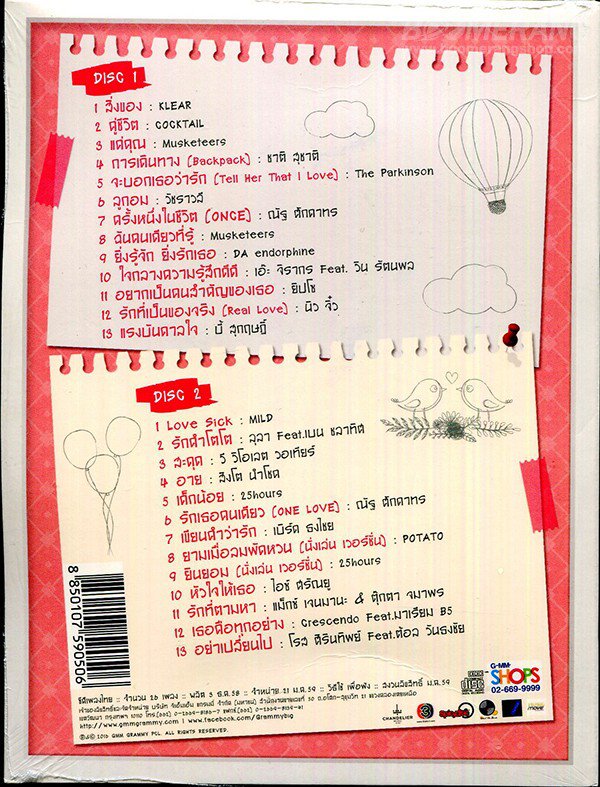 BOOMERANG
www.boomerangshop.com
DISC 1
1 สิ่งของ : KLEAR
2 คู่ชีวิต : COCKTAIL
3 แด่คุณ : Musketeers
4 การเดินทาง (Backpack) : ชาติ สุชาติ
5 จะบอกเธอว่ารัก (Tell Her That I Love) : The Parkinson
6 ลูกอม : วัชราวลี
7 ครั้งหนึ่งในชีวิต (ONCE) : ณัฐ ศักดาทร
8 ฉันคนเดียวที่รู้ : Musketeers
9 ยิ่งรู้จัก ยิ่งรักเธอ : DA endorphine
10 ใจกลางความรู้สึกดีดี : เอ๊ะ จิรากร Feat. วิน รัตนพล
11 อยากเป็นคนสำคัญของเธอ : ยิปโซ
12 รักที่เป็นของจริง (Real Love) : นิว จิ๋ว
13 แรงบันดาลใจ : บี้ สุกฤษฎิ์
DISC 2
1 Love Sick : MILD
2 รักคำโตโต : ลุลา Feat.เบน ชลาทิศ
3 สะดุด : 5 วิโอเลต วอเทียร์
4 อาย : สิงโต นำโชค
5 เด็กน้อย : 25hours
6 รักเธอคนเดียว (ONE LOVE) : ณัฐ ศักดาทร
7 เขียนคำว่ารัก : เบิร์ด ธงไชย
8 ยามเมื่อลมพัดหวน (นั่งเล่น เวอร์ชั่น) : POTATO
9 ยินยอม (นั่งเล่น เวอร์ชั่น) : 25hours
10 หัวใจให้เธอ : ไอซ์ ศรัณยู
11 รักที่ตามหา : แม็กซ์ เจนมานะ & ตุ๊กตา จมาพร
12 เธอคือทุกอย่าง : Crescendo Feat.มาเรียม B5
13 อย่าเปลี่ยนไป : โรส ศิรินทิพย์ Feat.ต้อล วันธงชัย
8 850107 590506
G-MM-
SHOPS
02-669-9999
ซีดีเพลงไทย :: จำนวน 26 เพลง :: ผลิต 3 ธ.ค.58 :: จำหน่าย 21 ม.ค.59 :: วิธีใช้ เพื่อฟัง :: สงวนลิขสิทธิ์ ม.ค.59
http://www.gmmgrammy.com | www.facebook.com/Grammybig
℗&© 2016 GMM GRAMMY PCL. ALL RIGHTS RESERVED.
CHANDELIER
move